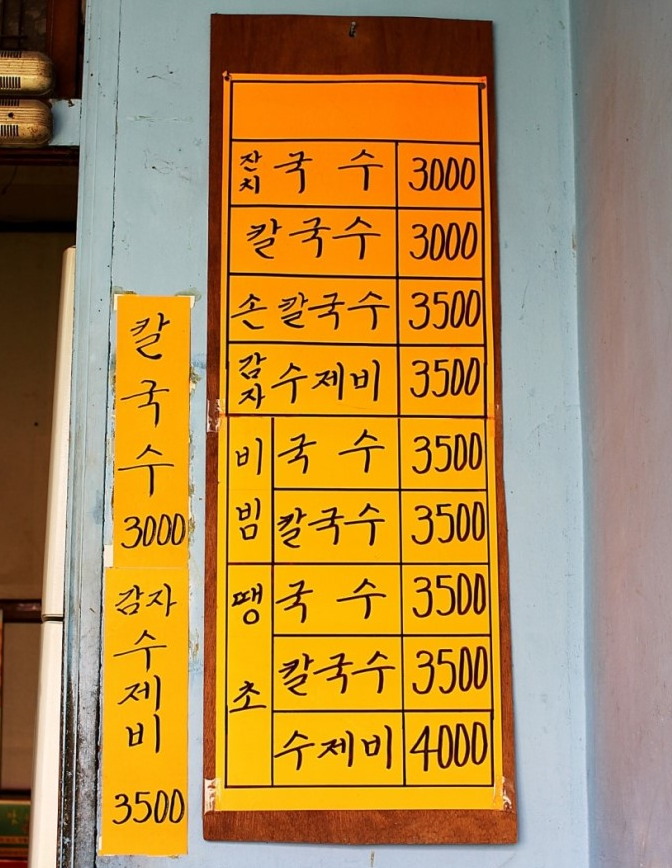 칼
국
수
3000
감자
수
제
비
3500
잔치 국 수 3000
칼국수 3000
손칼국수 3500
감자 수제비 3500
비빔 국 수 3500
칼국수 3500
땡초 국 수 3500
칼국수 3500
수제비 4000